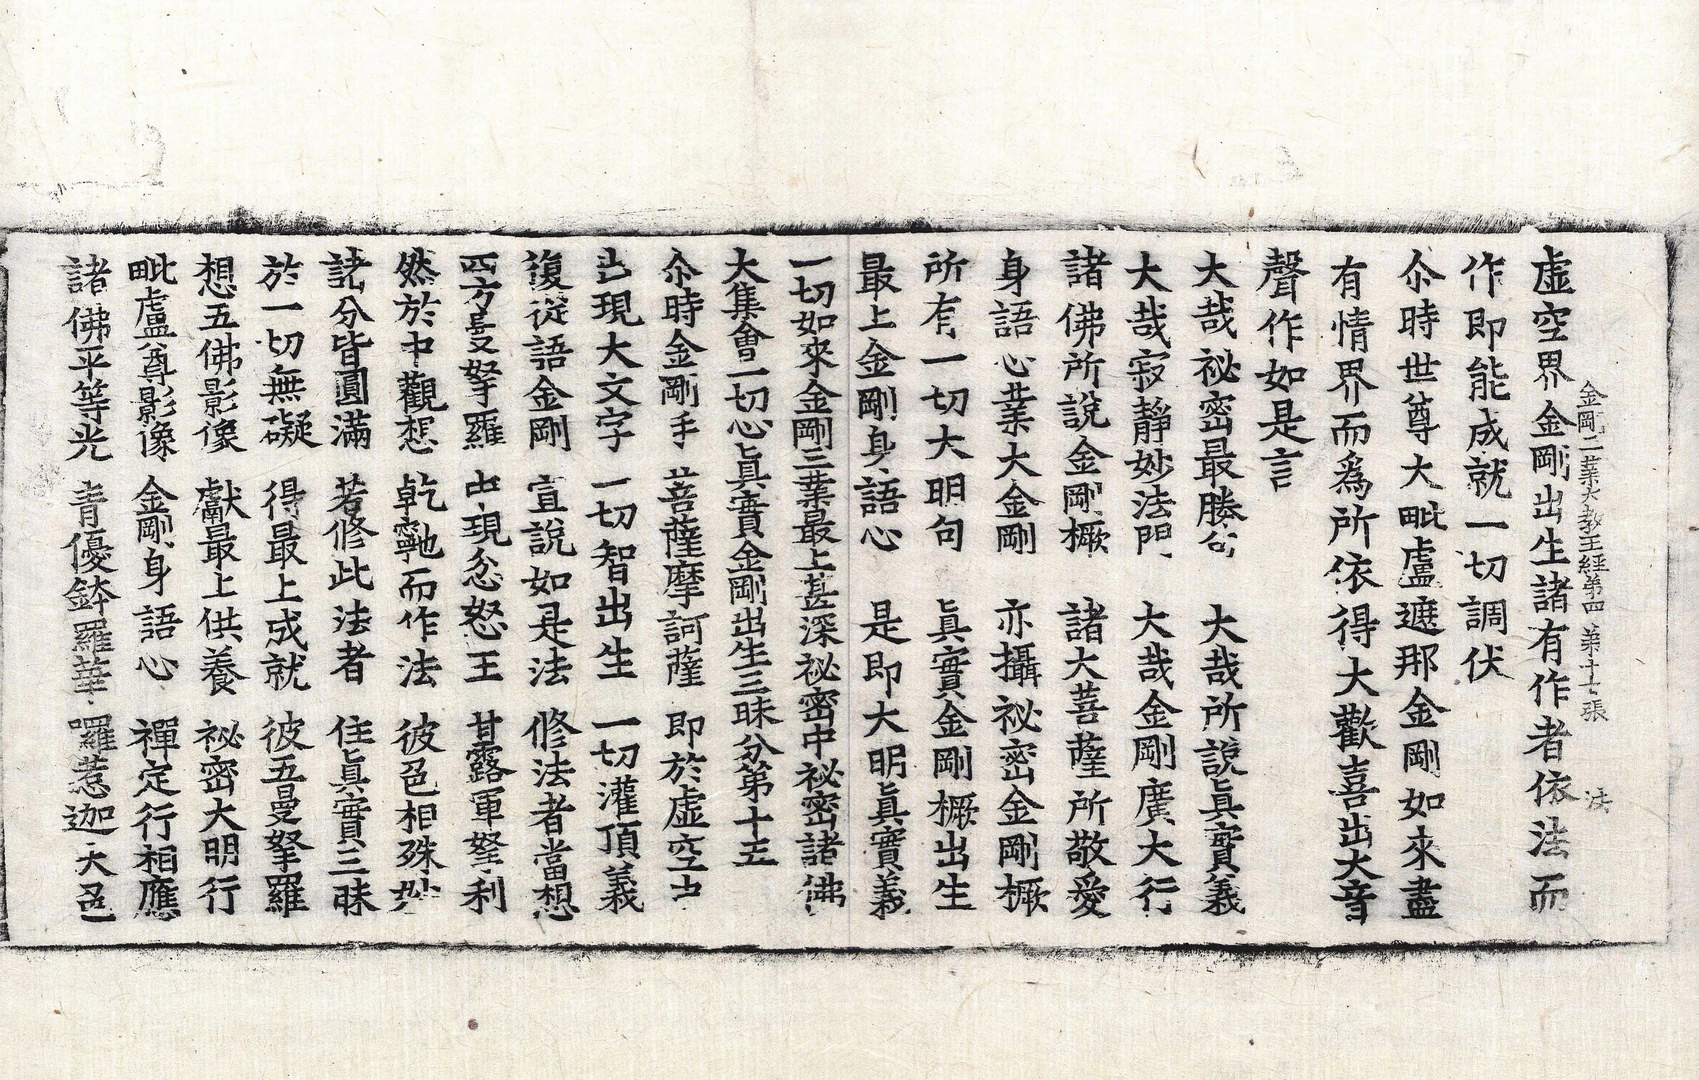 金剛三業大教王經第四 第十七張 法
虛空界金剛出生諸有作者依法而
作即能成就一切調伏
尒時世尊大毗盧遮那金剛如來盡
有情界而爲所依得大歡喜出大音
聲作如是言
大哉祕密最勝句 大哉所說眞實義
大哉寂靜妙法門 大哉金剛廣大行
諸佛所說金剛橛 諸大菩薩所敬愛
身語心業大金剛 亦攝祕密金剛橛
所有一切大明句 眞實金剛橛出生
最上金剛身語心 是即大明眞實義
一切如來金剛三業最上甚深祕密中祕密諸佛
大集會一切心眞實金剛出生三昧分第十五
尒時金剛手 菩薩摩訶薩 即於虛空中
出現大文字 一切智出生 一切灌頂義
復從語金剛 宣說如是法 修法者當想
四方曼拏羅 出現忿怒王 甘露軍拏利
然於中觀想 乾𪓐而作法 彼色相殊妙
諸分皆圓滿 若修此法者 住眞實三昧
於一切無礙 得最上成就 彼五曼拏羅
想五佛影像 獻最上供養 祕密大明行
毗盧尊影像 金剛身語心 禪定行相應
諸佛平等光 青優鉢羅華 囉惹迦大色